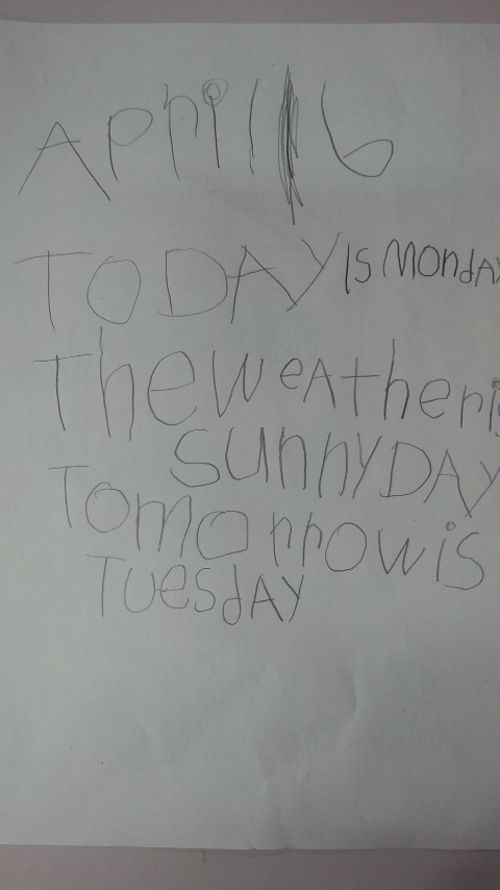 April 16
TODAY is Monday
The weather is
sunny DAY
Tomorrow is
TuesdAy